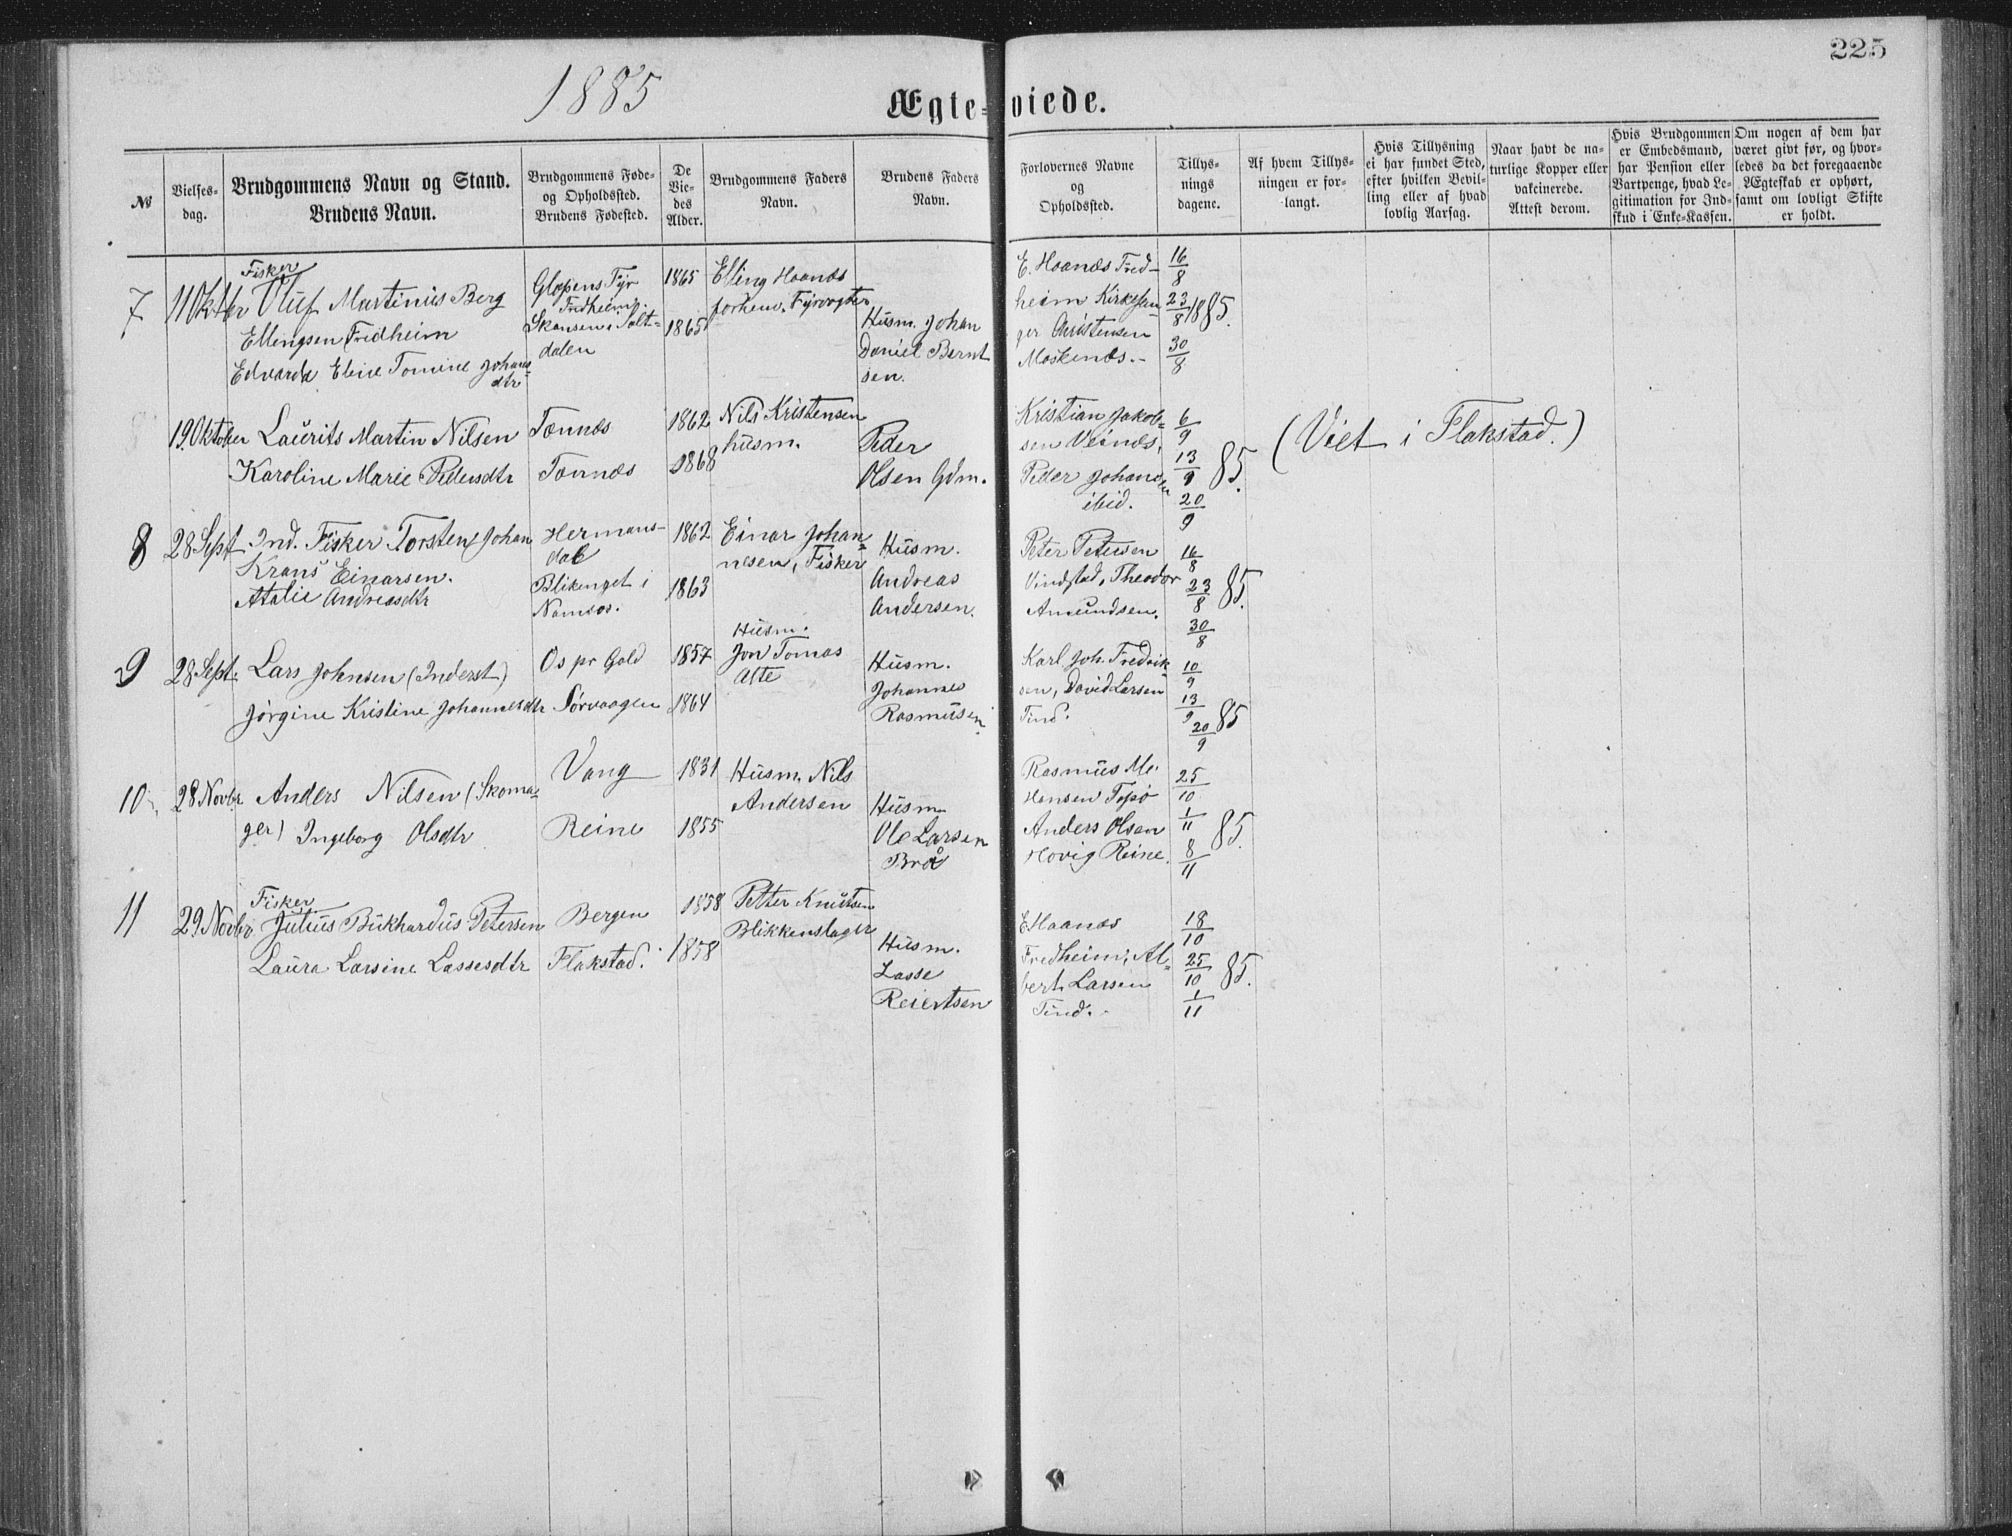 225
1885
Ægte-viede.
№
Vielses-
dag.
Brudgommens Navn og Stand.
Brudens Navn.
Brudgommens Føde-
og Opholdssted.
Brudens Fødested.
De
Vie-
des
Alder.
Brudgommens Faders
Navn.
Brudens Faders
Navn.
Forlovernes Navne
og
Opholdssted.
Tillys-
nings
dagene.
Af hvem Tillys-
ningen er for-
langt.
Hvis Tillysning
ei har fundet Sted,
efter hvilken Bevil-
ling eller af hvad
lovlig Aarsag.
Naar havt de na-
turlige Kopper eller
vakcinerede.
Attest derom.
Hvis Brudgommen
er Embedsmand,
har Pension eller
Vartpenge, hvad Le-
gitimation for Ind-
skud i Enke-Kassen.
Om nogen af dem har
været givt før, og hvor-
ledes da det foregaaende
Ægteskab er ophørt,
samt om lovligt Skifte
er holdt.
7
11 Oktbr
Fisker
Oluf Martinus Berg
Ellingsen Fredheim
Edvarda Eline Tomine Johans
dtr
Glopens Fyr
Fredheim
Skansen i Salt-
dalen
1865
1865
Elling Haanæs
forhenv. Fyrvogter
Husm. Johan
Daniel Bernt
sen.
E. Haanæs Fred-
heim Kirkesan
ger Christensen
Moskenæs.-
16/8
23/8 1885.
30/8
19. Oktober
Laurits Martin Nilsen
Karoline Marie Pedersdtr
Tønnæs
Tønnæs
1862
1868
Nils Kristensen
husm.
Peder
Olsen Gdm.
Kristian Jakob-
sen Veinæs,
Peder Johansen
ibid.
6/9
13/9 85.
20/9
(Viet i Flakstad.)
8
28 Sept
Ind. Fisker Torsten Johan
Krans Einarsen.
Atalie Andreasdtr
Hermans-
dal
Blikenget i
Namsos.
1862
1863
Einar Johan-
nesen, Fisker
Husm.
Andreas
Andersen.
Peter Petersen
Vindstad, Theodor
Amundsen.
16/8
23/8 85.
30/8
9
28 Sept.
Lars Johnsen (Inderst)
Jørgine Kristine Johannesdtr
Os pr Gald
Sørvaagen
1857
1864
Husm.
Jon Tomas
Alte
Husm.
Johannes
Rasmusen
Karl Joh. Fredrik-
sen, David Larsen
Tind.
10/9
13/9 85
20/9
10
28 Novbr
Anders Nilsen (Skoma-
ger) Ingeborg Olsdtr
Vang
Reine
1831
1855
Husm. Nils
Andersen
Husm
Ole Larsen
Braa
Rasmus M.
Hansen Topø
Anders Olsen
Hovig Reine.
25/10
1/11 85.
8/11
11
29 Novbr
Fisker
Julius Bukhardus Petersen
Laura Larsine Lassesdtr
Bergen
Flakstad.
1858
1858
Petter Knutsen
Blikkenslager
Husm.
Lasse
Reiertsen
E Haanæs
Fredheim, Al-
bert Larsen
Tind.
18/10
25/10 85.
1/11